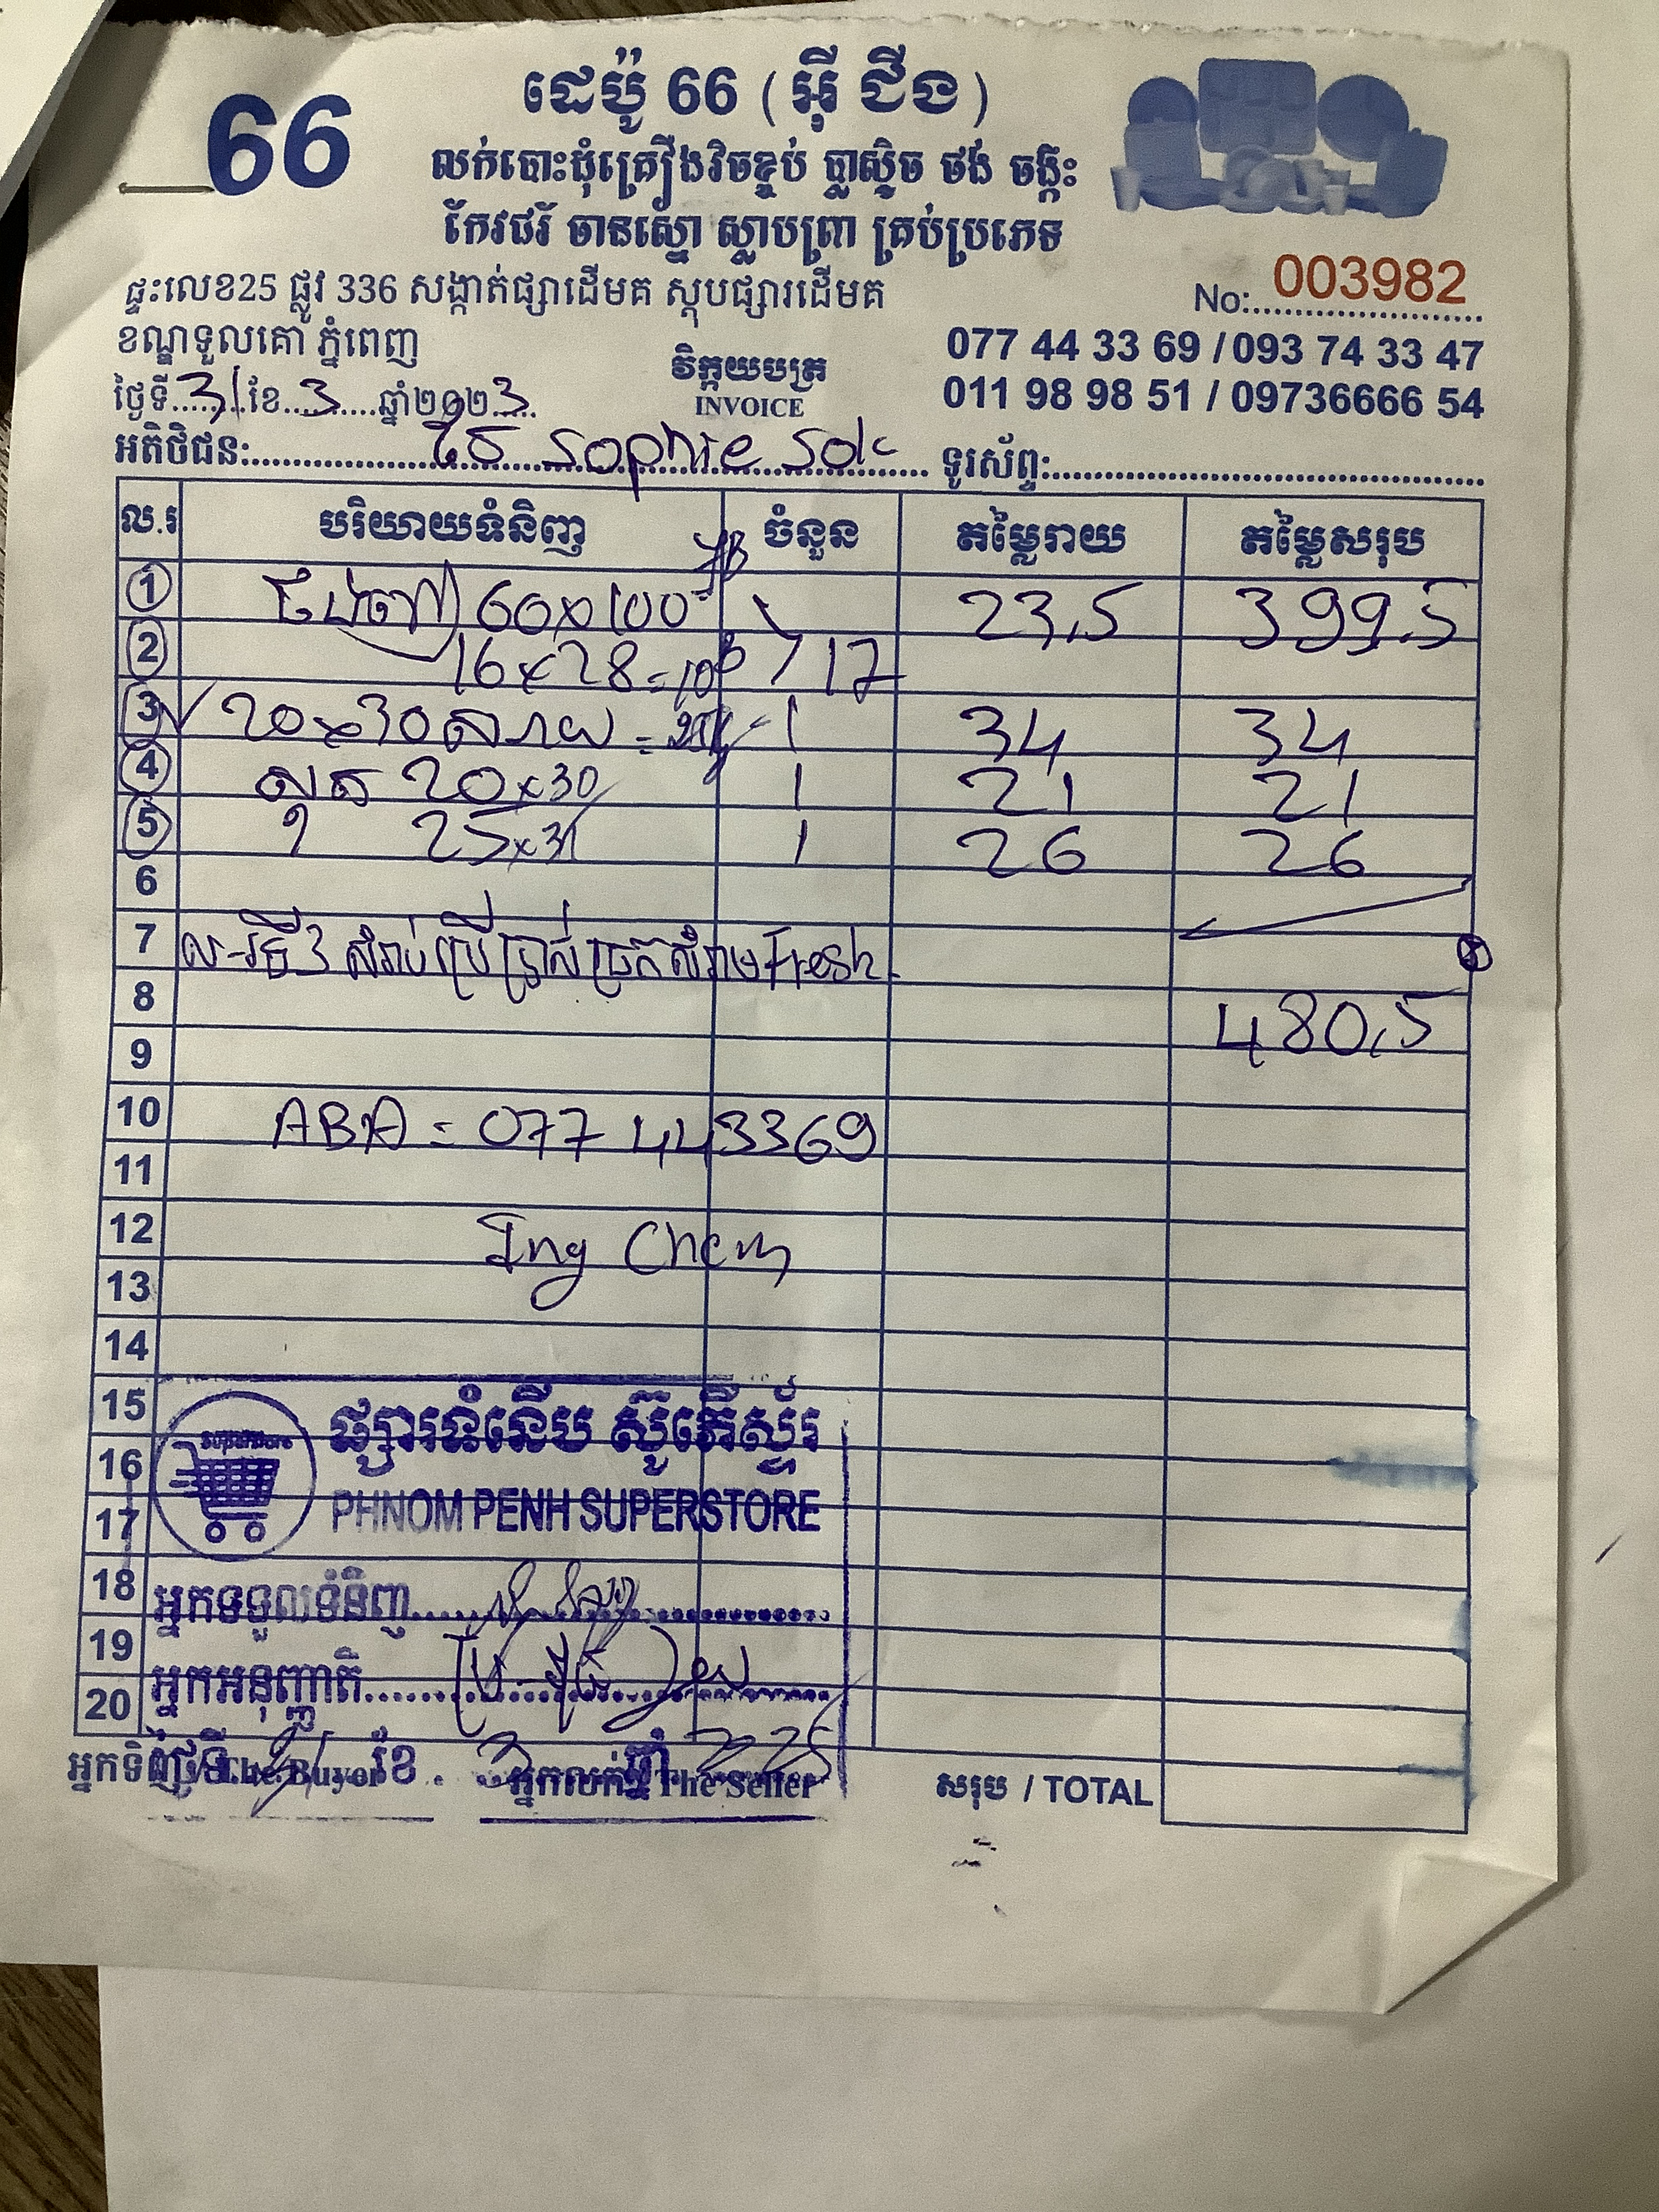 66
ដេប៉ូ 66 (អ៊ី ជីង)
លក់បោះដុំគ្រឿងវិចខ្ចប់ ប្លាស្ទិច ថង់ ចង្កឹះ
កែវជ័រ ចានស្នោ ស្លាបព្រា គ្រប់ប្រភេទ
ផ្ទះលេខ25 ផ្លូវ 336 សង្កាត់ផ្សាដើមគ ស្តុបផ្សារដើមគ
No: 003982
ខណ្ឌទួលគោ ភ្នំពេញ
077 44 33 69 / 093 74 33 47
វិក្កយបត្រ
INVOICE
011 98 98 51 / 09736666 54
ថ្ងៃទី 31 ខែ 3 ឆ្នាំ២០២3
អតិថិជន: Sophie ទូរស័ព្ទ:
ល.រ បរិយាយទំនិញ ចំនួន តម្លៃរាយ តម្លៃសរុប
1 60x100 23,5 399.5
2 16x28 17
3 20x30 1 34 34
4 20x30 1 21 21
5 25x 1 26 26
6
7 ល-រទី3 សំរាប់ប្រើប្រាស់ច្រកសំរាម Fresh
8 480,5
9
10 ABA = 077 443369
11
12 Ing Chem
13
14
15 ផ្សារទំនើប ស៊ូភើស្ទ័រ
16
17 PHNOM PENH SUPERSTORE
18 អ្នកទទួលទំនិញ
19
20 អ្នកអនុញ្ញាតិ
អ្នកទិញ / The Buyer អ្នកលក់ / The Seller សរុប / TOTAL
ថ្ងៃទី ខែ 3 ឆ្នាំ